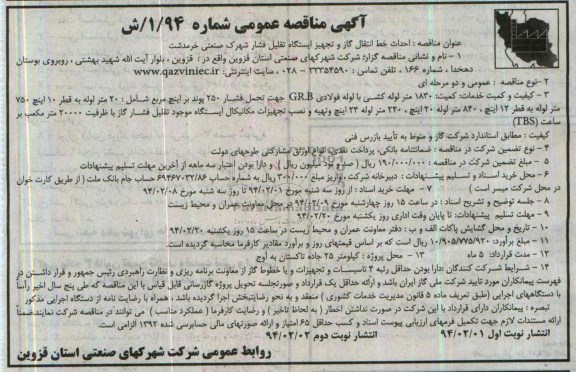 آگهی مناقصه عمومی شماره ۱/۹۴/ش
عنوان مناقصه : احداث خط انتقال گاز و تجهیز ایستگاه تقلیل فشار شهرک صنعتی خرمدشت
۱ – نام و نشانی مناقصه گزار: شرکت شهرکهای صنعتی استان قزوین واقع در : قزوین ، بلوار آیت الله شهید بهشتی ، روبروی بوستان
دهخدا ، شماره ۱۶۶ ، تلفن تماس : ۳۳۳۵۴۵۹۰ – ۰۲۸ ، سایت اینترنتی: www.qazviniec.ir
۲- نوع مناقصه : عمومی و دو مرحله ای
۳ – کیفیت و کمیت خدمات: کمیت: ۱۸۳۰ متر لوله کشی با لوله فولادی GR.B جهت تحمل فشار ۲۵۰ پوند بر اینچ مربع شامل : ۲۰ متر لوله به قطر ۱۰ اینچ ۷۵۰
متر لوله به قطر ۱۲ اینچ ، ۸۴۰ متر لوله ۲۰ اینچ ، ۲۲۰ متر لوله ۲۴ اینچ وتهیه و نصب تجهیزات مکانیکال ایستگاه موجود تقلیل فشار گاز با ظرفیت ۲۰۰۰۰ متر مکعب بر
ساعت (TBS)
کیفیت : مطابق استاندارد شرکت گاز و منوط به تأیید بازرس فنی
۴ – نوع تضمین شرکت در مناقصه : ضمانتنامه بانکی، پرداخت نقدی، انواع اوراق مشارکتی طرحهای دولت
۵ – مبلغ تضمین شرکت در مناقصه : ۱۹۰/۰۰۰/۰۰۰ ریال ( صد و نود میلیون ریال ) و دارا بودن اعتبار سه ماهه از آخرین مهلت تسلیم پیشنهادات
۶ – محل خرید اسناد و تسلیم پیشنهادات : دبیرخانه شرکت واریز مبلغ ۳۰۰/۰۰۰ ریال به شماره حساب ۶۹۴۶۷۰۳۲/۸۶ حساب جام بانک ملت ( از طریق کارت خوان
در محل شرکت میسر است ) ۷ – مهلت خرید اسناد : از روز سه شنبه مورخ ۹۴/۰۲/۰۱ تا روز سه شنبه مورخ ۹۴/۰۲/۰۸
۸ – جلسه توضیح و تشریح اسناد : در ساعت ۱۵ روز چهارشنبه مورخ ۹۴/۰۲/۰۹ در محل معاونت عمران و محیط زیست
۹ – مهلت تسلیم پیشنهادات: تا پایان وقت اداری روز یکشنبه مورخ ۹۴/۰۲/۲۰
۱۰ – تاریخ و محل گشایش پاکات الف و ب : دفتر معاونت عمران و محیط زیست در ساعت ۱۵ روز یکشنبه ۹۴/۰۲/۲۰
۱۱ – مبلغ برآورد: ۱۰/۹۰۵/۷۷۵/۹۲۰ ریال است که بر اساس قیمتهای روز و برآورد مقادیر کارفرما محاسبه گردیده است.
۱۲ – مدت قرارداد: ۵ ماه ۱۳ – محل پروژه : کیلومتر ۲۵ جاده تاکستان به آوج
۱۴ – شرایط شرکت کنندگان :دارا بودن حداقل رتبه ۴ تاسیسات و تجهیزات و یا خطوط گاز از معاونت برنامه ریزی و نظارت راهبردی رئیس جمهور و قرار داشتن در
فهرست پیمانکاران مورد تأیید شرکت ملی گاز ایران باشد و ارائه حداقل یک قرارداد و صورتجلسه تحویل پروژه گازرسانی قابل قیاس با این مناقصه که طی پنج سال اخیر رأساً
با دستگاههای اجرایی (طبق تعریف ماده ۵ قانون مدیریت خدمات کشوری ) منعقد و به نحو رضایتبخش اجرا گردیده باشد ، همراه با رضایت نامه از دستگاه اجرایی مذکور
تبصره : پیمانکاران دارای قرارداد با این شرکت در صورت نداشتن اخطار ( به لحاظ تاخیر ) و رضایت کارفرما (عملکرد مناسب ) می توانند در مناقصه شرکت نمایندضمناً
ارائه مستندات لازم جهت تکمیل فرمهای ارزیابی پیوست اسناد و کسب حداقل ۶۵ امتیاز و ارائه صورتهای مالی حسابرسی شده ۱۳۹۲ الزامی است.
انتشار نوبت اول ۹۴/۰۲/۰۱ انتشار نوبت دوم ۹۴/۰۲/۰۲
روابط عمومی شرکت شهرکهای صنعتی استان قزوین